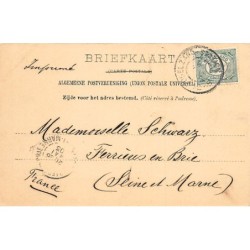 BRIEFKAART
Imprimé
ALGEMEENE POSTVEREENIGING (UNION POSTALE UNIVERSELLE)
Zijde voor het adres bestemd. (Côté réservé à l'adresse)
Mademoiselle Schwarz
Ferrières en Brie
(Seine et Marne)
France